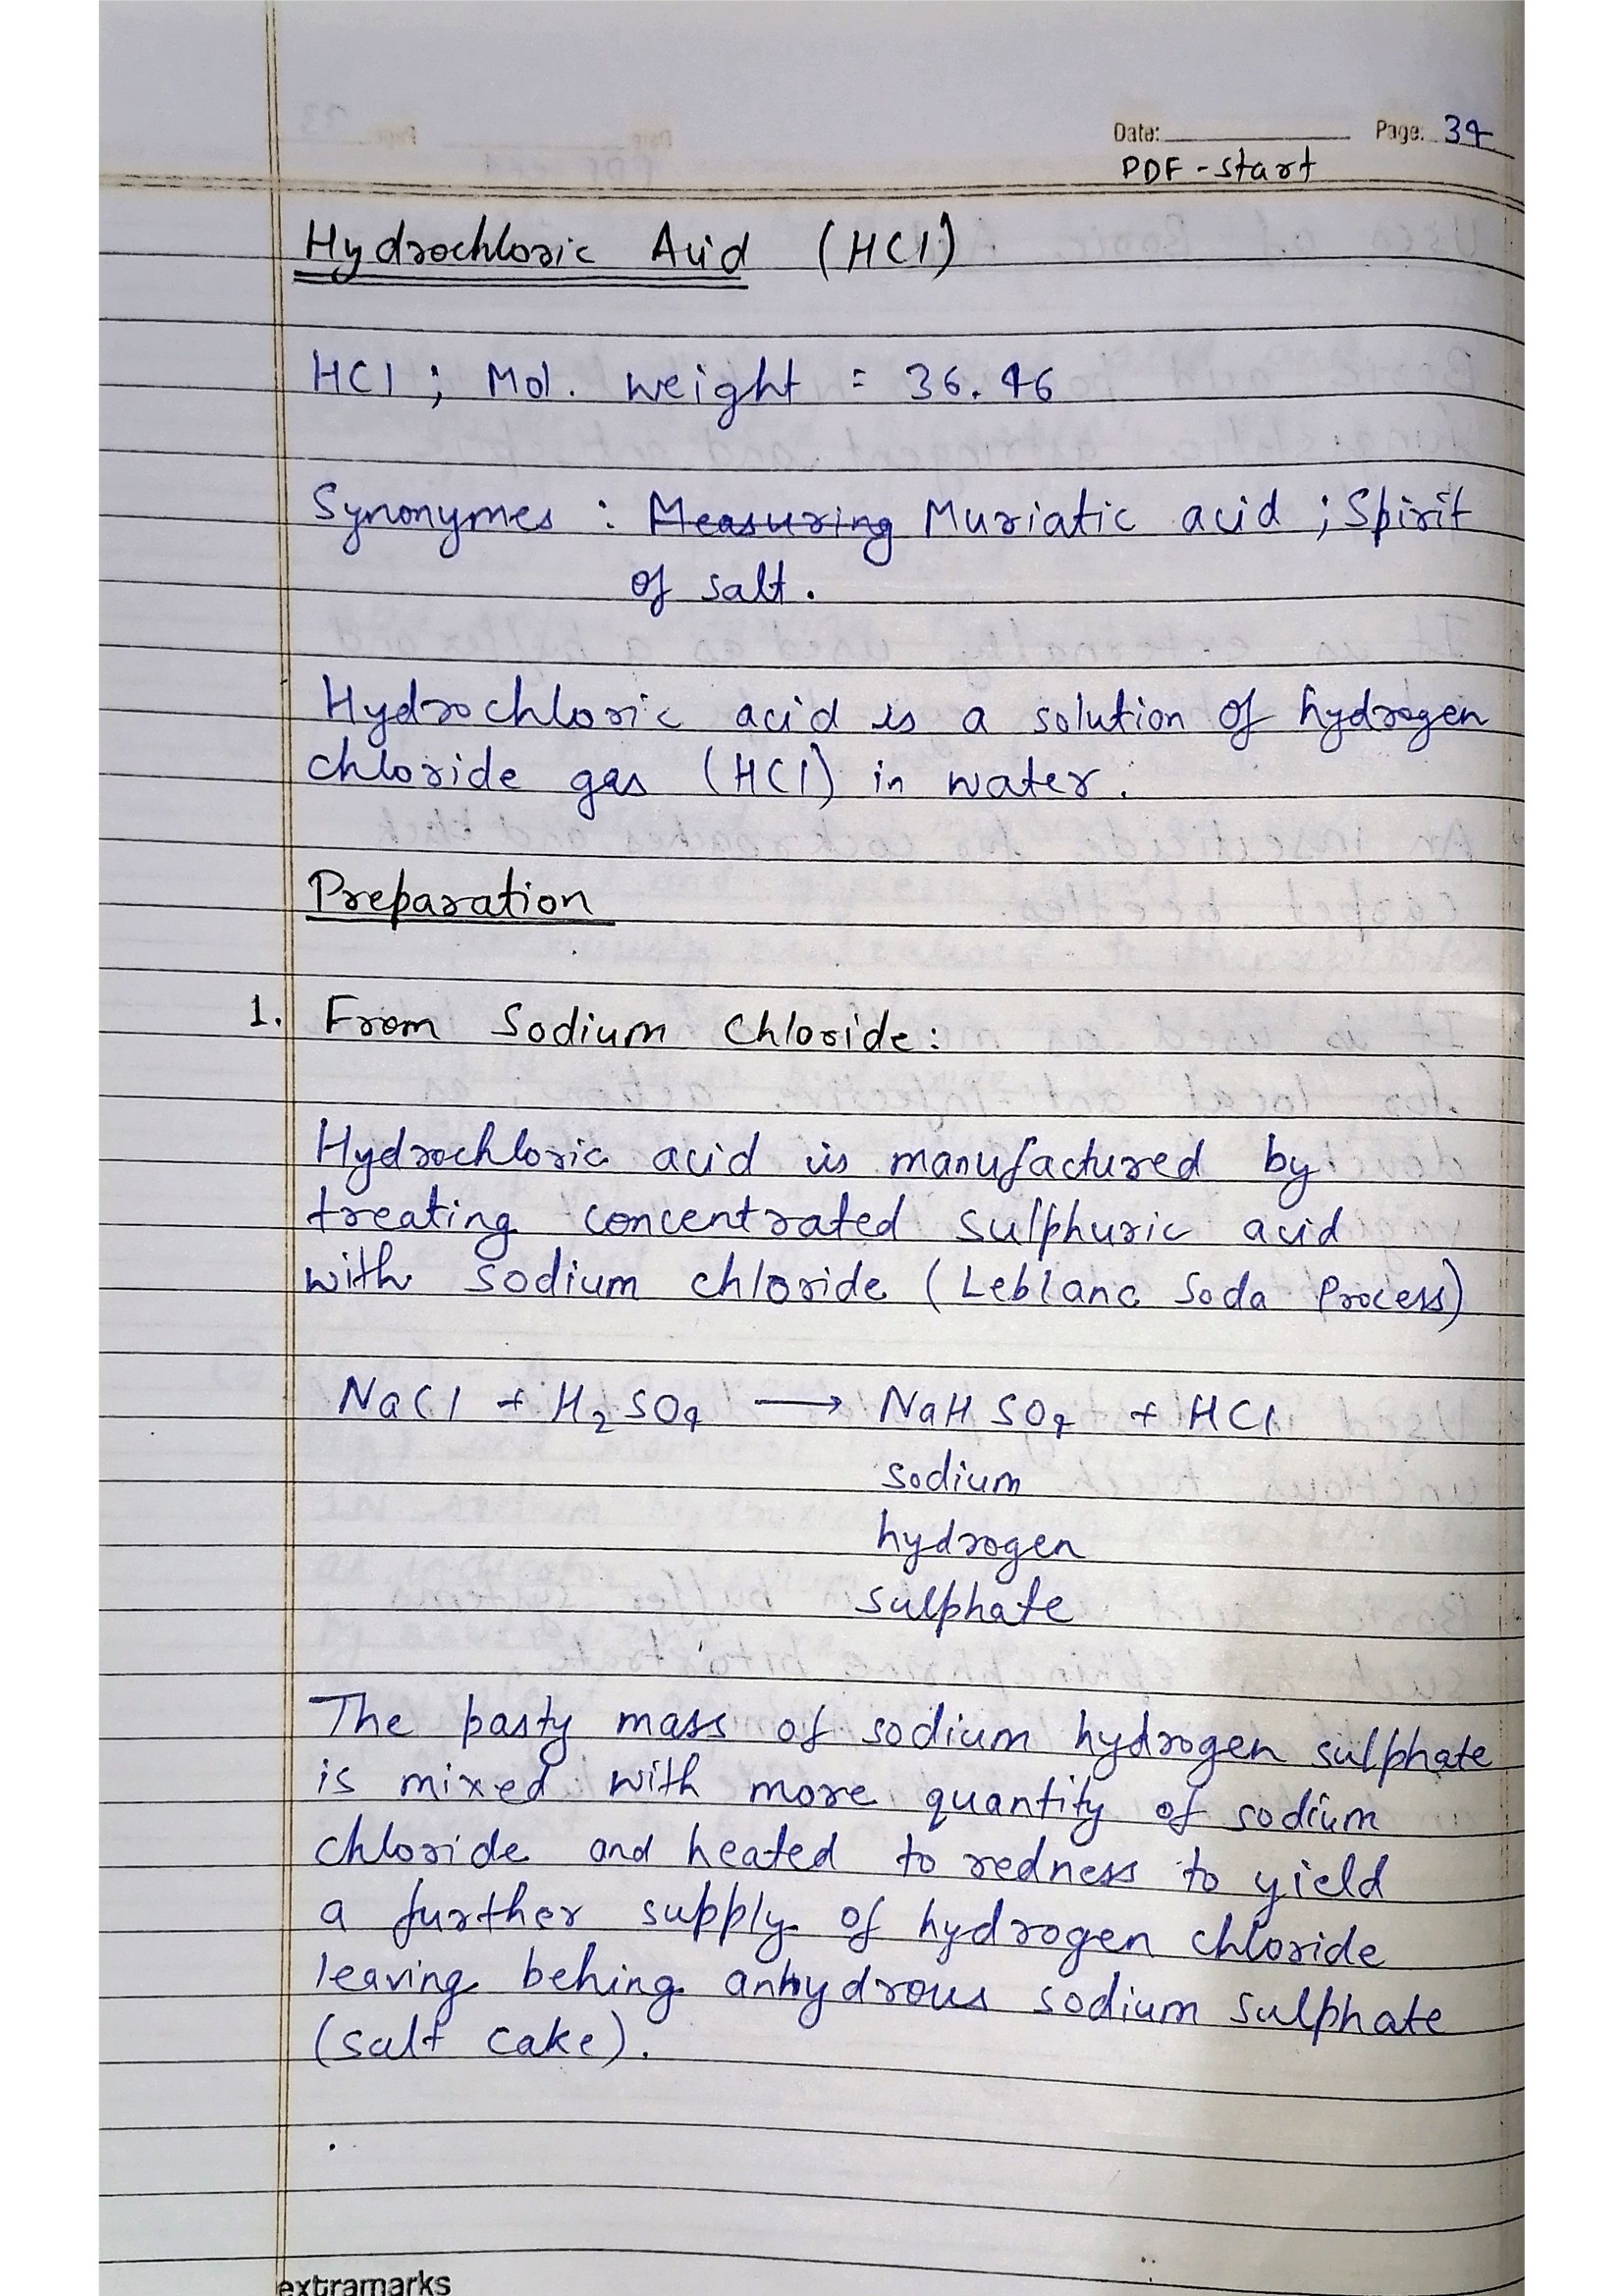 Date: Page. 34
PDF - start
Hydrochloric Acid (HCl)
HCl ; Mol. weight = 36.46
Synonymes : Measuring Muriatic acid ; Spirit
of salt.
Hydrochloric acid is a solution of hydrogen
chloride gas (HCl) in water.
Preparation
1. From Sodium Chloride:
Hydrochloric acid is manufactured by
treating concentrated sulphuric acid
with sodium chloride (Leblanc Soda Process)
NaCl + H₂SO₄ ⟶ NaHSO₄ + HCl
sodium
hydrogen
sulphate
The pasty mass of sodium hydrogen sulphate
is mixed with more quantity of sodium
chloride and heated to redness to yield
a further supply of hydrogen chloride
leaving behing anhydrous sodium sulphate
(salt cake).
extramarks